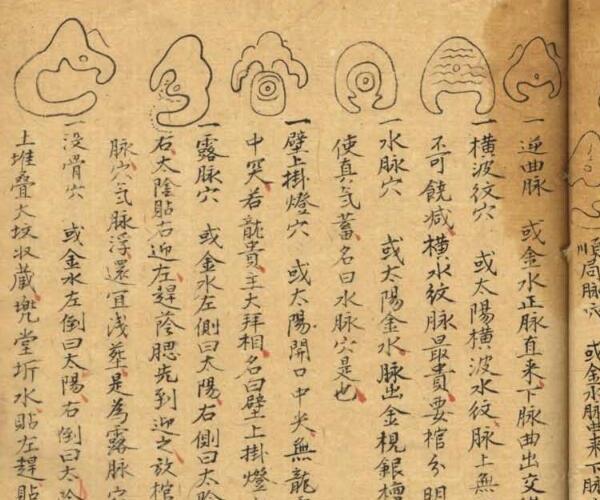 順局脉穴 或金水脉曲来下脉
一逆曲脉 或金水正脉直来下脉曲出交
一横波紋穴 或太陽横波水紋脉上無
不可饒减横水紋脉最貴要棺分明
一水脉穴 或太陽金水脉出金梘銀槽
使真氣蓄名曰水脉穴是也
一壁上掛燈穴 或太陽開口中尖無龍
中突若龍貴主大拜相名曰壁上掛燈
一露脉穴 或金水左側曰太陽右側曰太陰
右太陰貼右迎左趕蔭腮先到迎之放棺
脉穴氣脉浮還宜浅葬是為露脉穴
一没骨穴 或金水左倒曰太陽右倒曰太陰
土堆叠大坟収藏兜堂圻水貼左趕貼